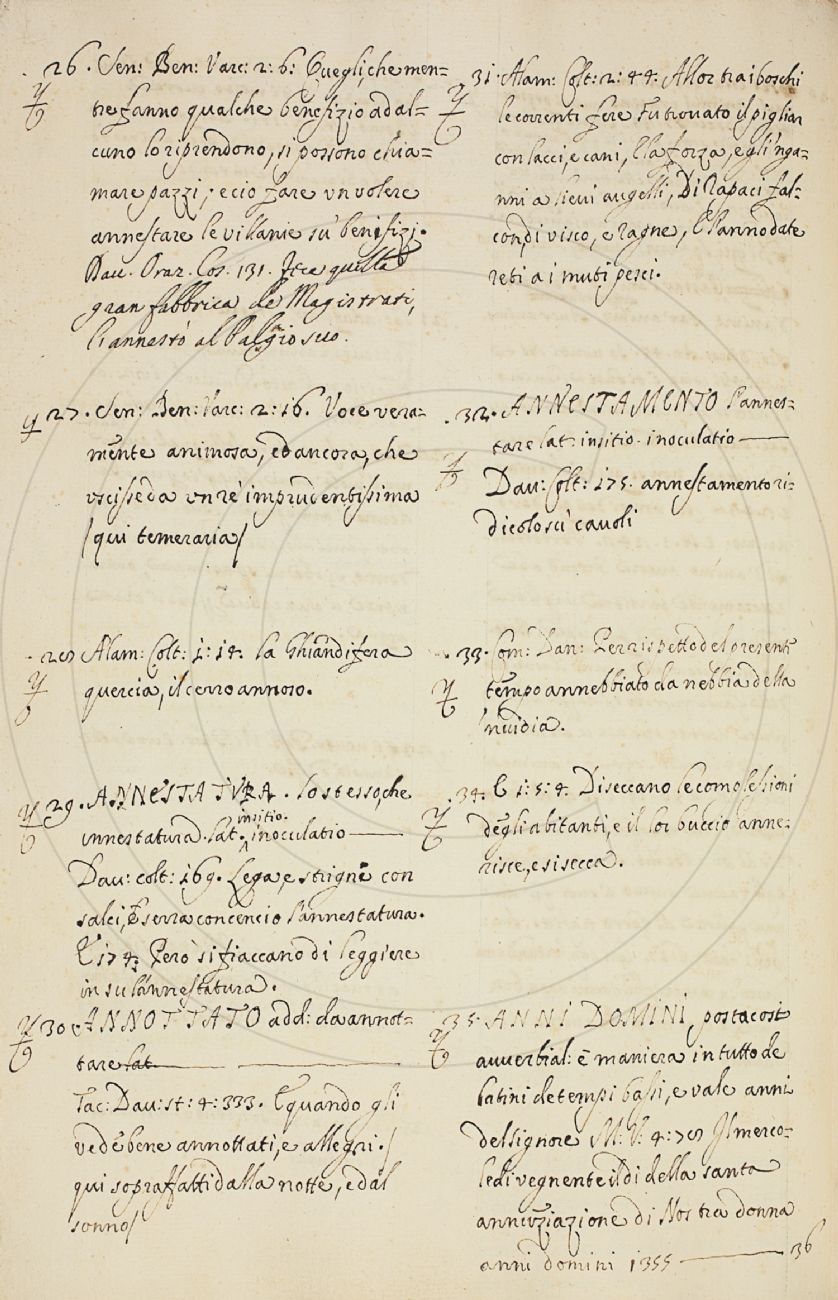 26. Sen: Ben: Varc: 2: 6: Quegli, che men=
tre fanno qualche benefizio ad al=
cuno lo riprendono, si possono chia=
mare pazzi; e cio fare vn volere
annestare le villanie sù benifizj.
Dau. Oraz. Cos. 131. questa
gran fabbrica de Magistrati,
l'annestò al Palgio suo.
27. Sen: Ben: Varc: 2: 16. Voce vera=
mente animosa, ed ancora, che
vscisse da vn rè imprudentissima
/qui temeraria/
28 Alam: Colt: 1: 14. la Ghiandifera
quercia, il cerro annoso.
29. ANNESTATVRA. lo stesso, che
innestatura. lat. insitio. inoculatio
Dau: colt: 169. Lega, e strigne con
salci, e serra con cencio l'annestatura.
E 174. Però si fiaccano di leggiere
in su l'annestatura.
30. ANNOTTATO add: da annot=
tare lat
Tac: Dau: st: 4: 333. E quando gli
vedè bene annottati, e allegri. /
qui sopraffatti dalla notte, e dal
sonno/
31. Alam: Colt: 2: 44. Allor trai boschi
le correnti fere Fu trouato il pigliar
con lacci, e cani, E la forza, e gl'inga=
nni a lieui augelli, Di Rapaci fal=
con, di visco, e ragne, E l'annodate
reti a i muti pesci.
32. ANNESTAMENTO l'annes=
tare lat: insitio. inoculatio
Dau: Colt: 175. annestamento ri=
dicolo sù cauoli
33. Com: Dan: Per rispetto del presente
tempo annebbiato da nebbia della
'nuidia.
34. C 1: 5: 4. Diseccano le complessioni
degli abitanti, e il lor buccio anne=
risce, e si secca.
35. ANNI DOMINI, posta cosi
auuerbial: è maniera in tutto de
Latini de tempi bassi, e vale anni
del Signore M: V: 4: 78 Il merco=
ledi vegnente il dì della santa
annuziazione di Nostra donna
anni domini 1355
36